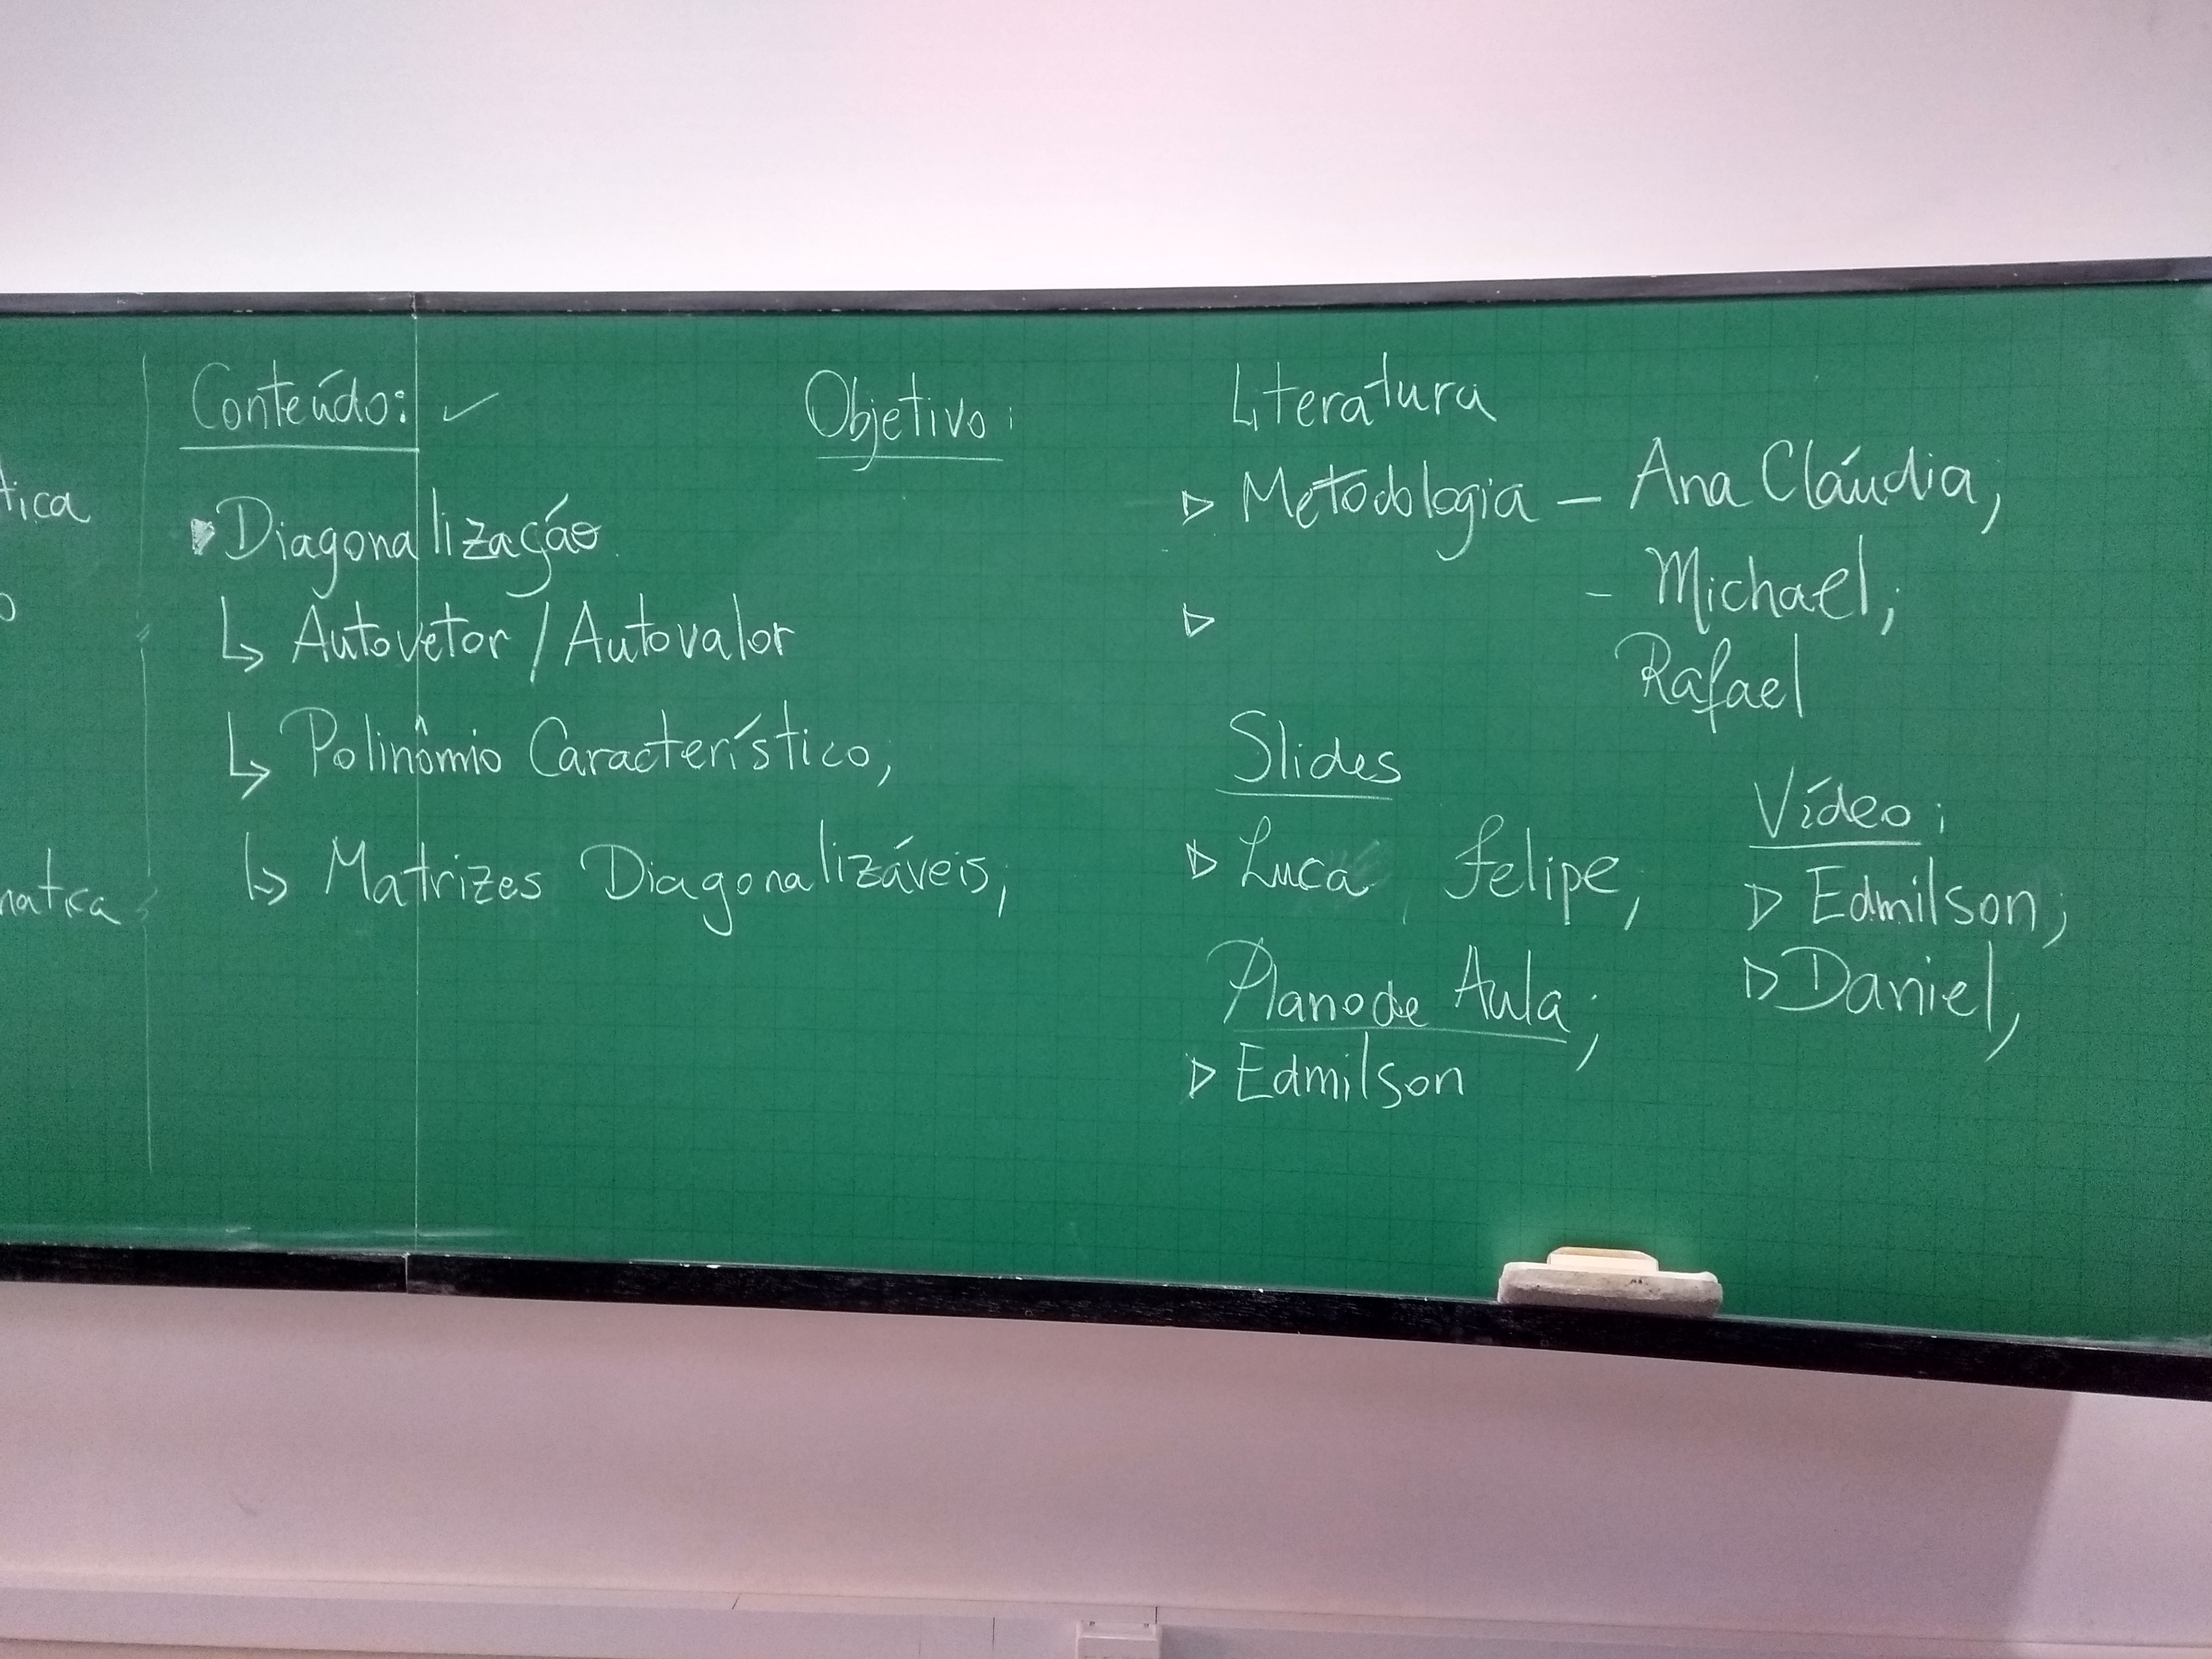 tica
o
matica
Conteúdo: ✓
Diagonalização
↳ Autovetor / Autovalor
↳ Polinômio Característico,
↳ Matrizes Diagonalizáveis,
Objetivo:
Literatura
▷ Metodologia – Ana Cláudia,
▷ – Michael;
Rafael
Slides
▷ Luca Felipe,
Plano de Aula;
▷ Edmilson
Vídeo:
▷ Edmilson;
▷ Daniel,